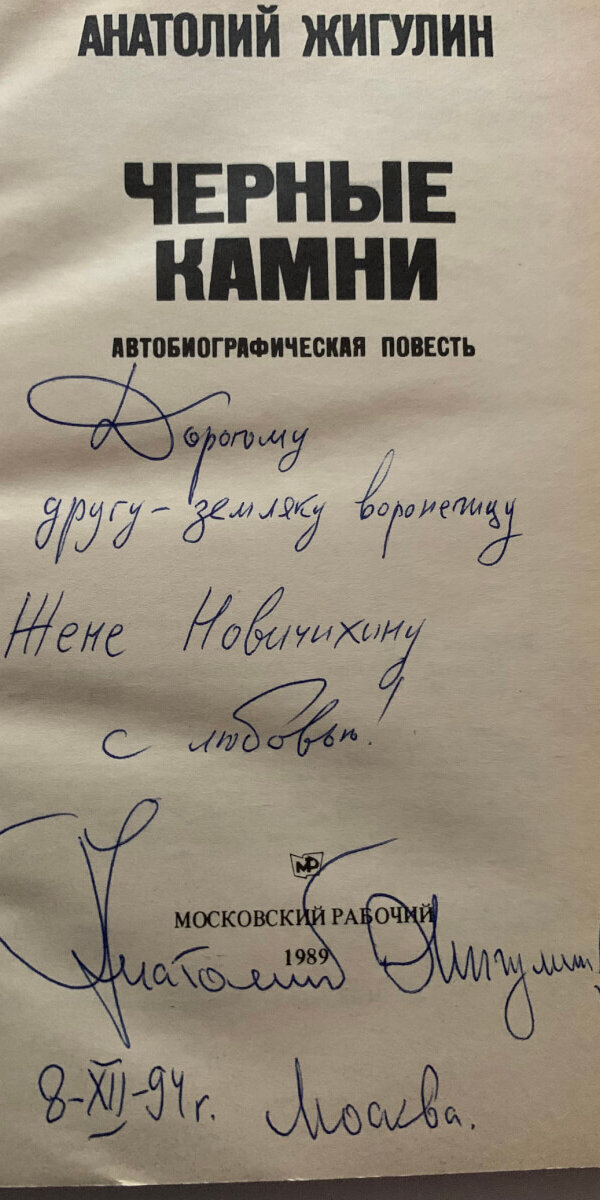 АНАТОЛИЙ ЖИГУЛИН
ЧЕРНЫЕ
КАМНИ
АВТОБИОГРАФИЧЕСКАЯ ПОВЕСТЬ
Дорогому
другу-земляку воронежцу
Жене Новичихину
с любовью!
МР
МОСКОВСКИЙ РАБОЧИЙ
1989
Анатолий Жигулин
8-XII-94 г. Москва.